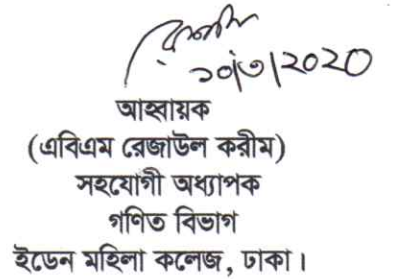 ১০/৩/২০২০
আহবায়ক
(এবিএম রেজাউল করীম)
সহযোগী অধ্যাপক
গণিত বিভাগ
ইডেন মহিলা কলেজ, ঢাকা।